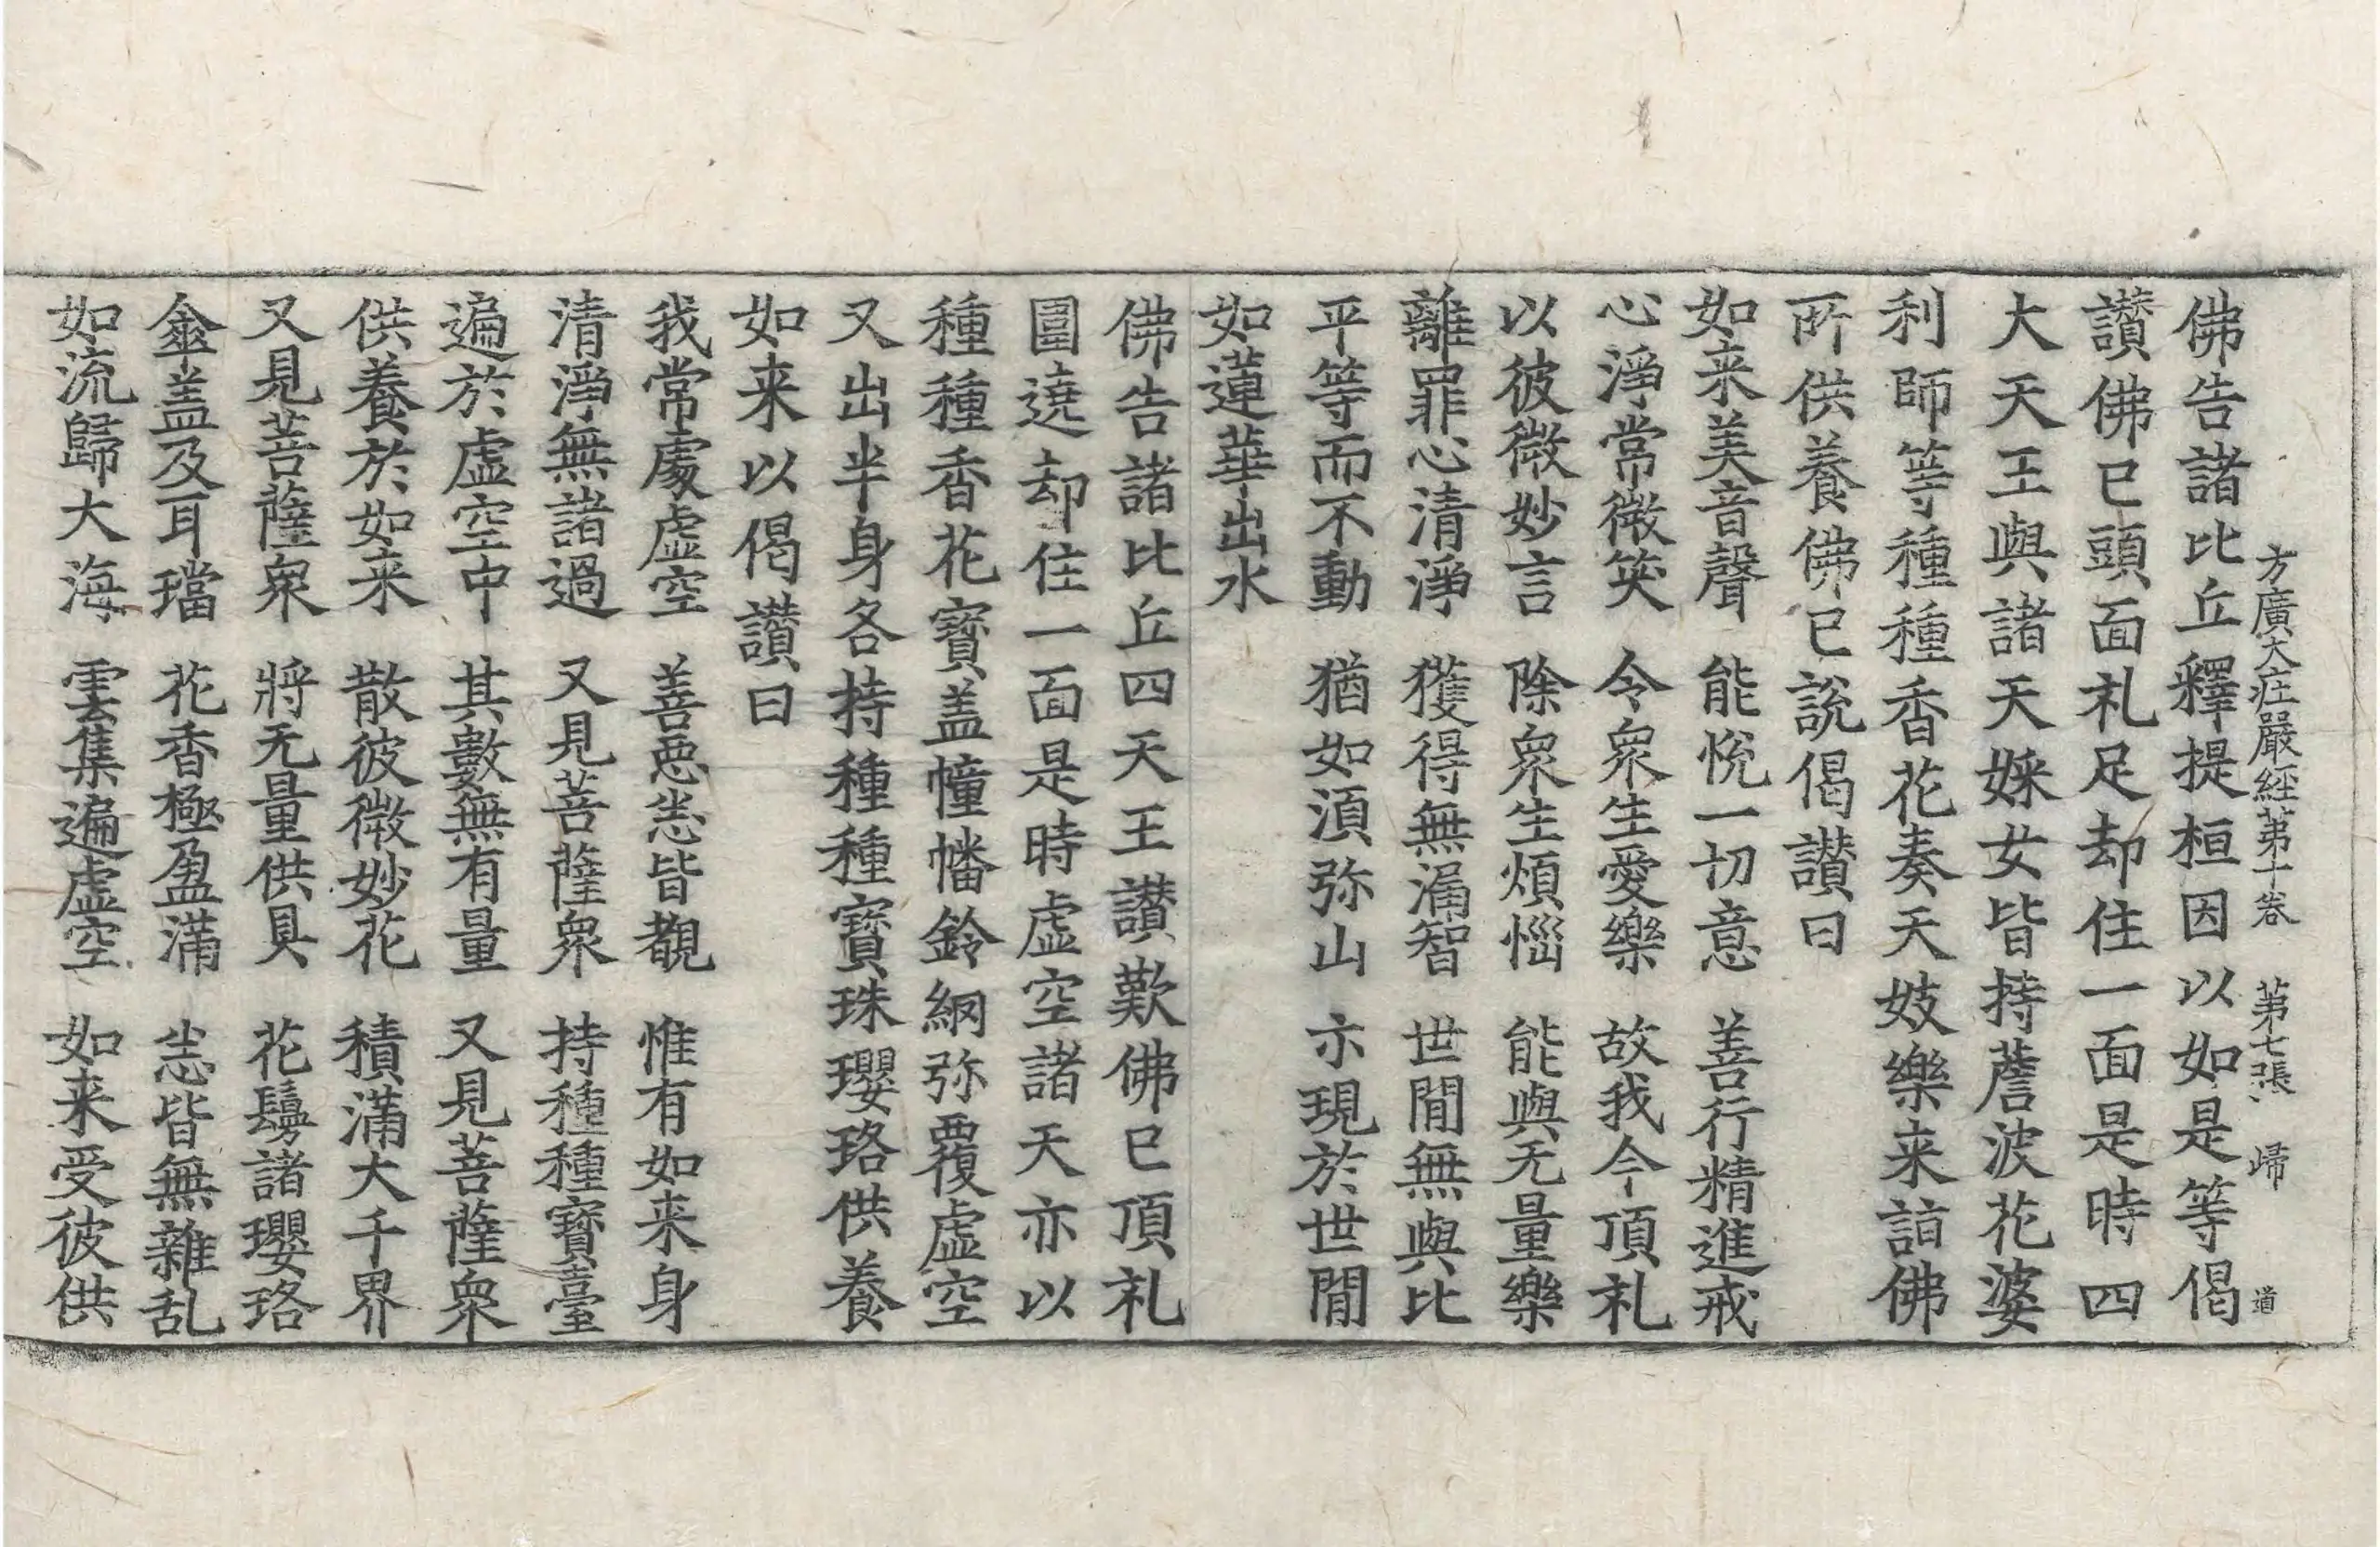 方廣大莊嚴經苐十卷 苐七張 歸 道
佛告諸比丘釋提桓因以如是等偈
讃佛已頭面礼足却住一面是時四
大天王與諸天婇女皆持薝波花婆
利師等種種香花奏天妓樂来詣佛
所供養佛已說偈讃曰
如来美音聲 能悅一切意 善行精進戒
心淨常微笑 令衆生愛樂 故我今頂礼
以彼微妙言 除衆生煩惱 能與无量樂
離罪心清淨 獲得無漏智 世閒無與比
平等而不動 猶如湏弥山 亦現於世閒
如蓮華出水
佛告諸比丘四天王讃歎佛已頂礼
圍遶却住一面是時虚空諸天亦以
種種香花寶盖幢幡鈴網弥覆虚空
又出半身各持種種寶珠瓔珞供養
如来以偈讃曰
我常處虚空 善惡悉皆覩 惟有如来身
清淨無諸過 又見菩薩衆 持種種寶臺
遍於虚空中 其數無有量 又見菩薩衆
供養於如来 散彼微妙花 積滿大千界
又見菩薩衆 將无量供具 花鬘諸瓔珞
傘盖及耳璫 花香極盈滿 悉皆無雜乱
如流歸大海 雲集遍虚空 如来受彼供